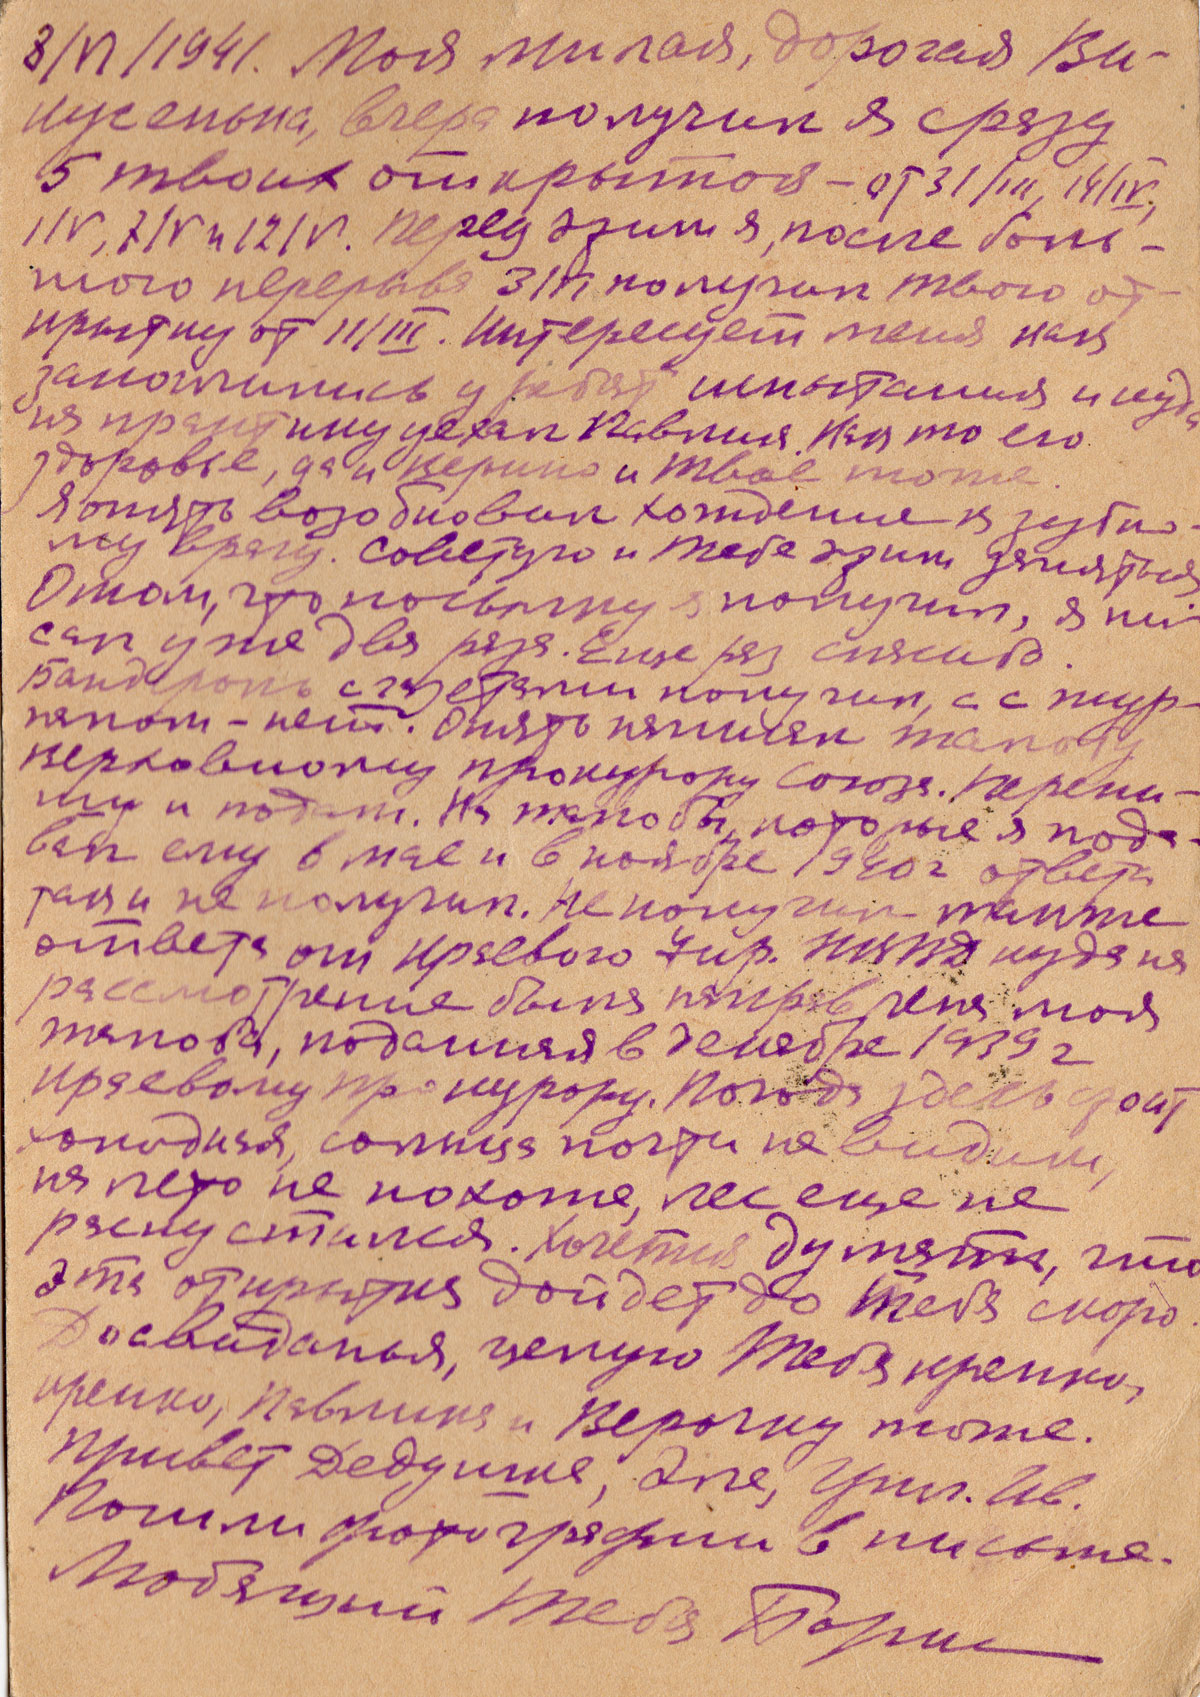 8/VI/1941. Моя милая, дорогая Ви-
нусенька, вчера получил я сразу
5 твоих открыток – от 31/III, 14/IV,
1/V, 7/V и 12/V. Перед этим я, после боль-
шого перерыва 3/VI получил твою от-
крытку от 11/III. Интересует меня как
закончились у ребят испытания и куда
на практику уехал Павлик. Как то его
здоровье, да и Верино и Твое тоже.
Я опять возобновил хождение к зубно-
му врачу. Советую и тебе этим заняться
О том, что посылку я получил, я пи-
сал уже два раза. Еще раз спасибо.
Бандероль с газетами получил, а с жур-
налом – нет. Опять написал жалобу
Верховному прокурору Союза. Перепи-
шу и подам. На жалобы, которые я пода-
вал ему в мае и в ноябре 1940 г ответа
так и не получил. Не получил также
ответа от Краевого Упр. НКВД куда на
рассмотрение была направлена моя
жалоба, поданная в декабре 1939 г
Краевому прокурору. Погода здесь стоит
холодная, солнца почти не видим,
на лето не похоже, лес еще не
распустился. Хочется думать, что
эта открытка дойдет до Тебя скоро.
Досвиданья, целую Тебя крепко,
крепко, Павлика и Верочку тоже.
Привет Дедушке, Эле, Ив.
Пошли фотографии в письме.
Любящий Тебя Борис